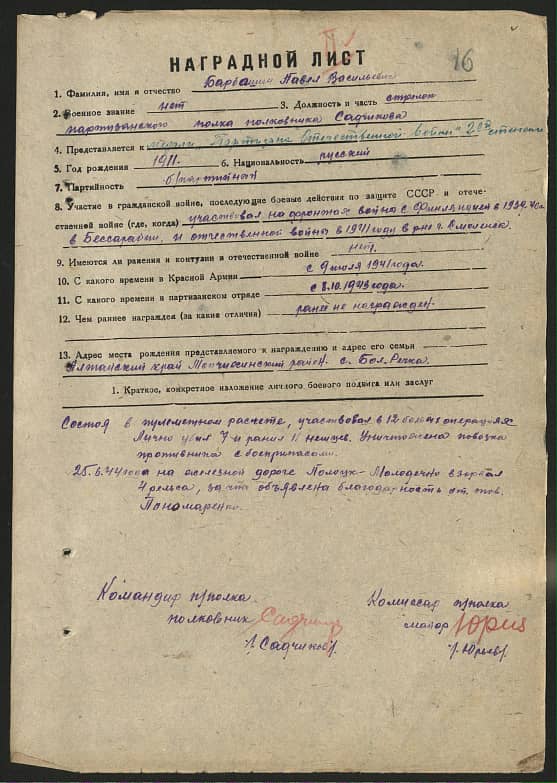 16
НАГРАДНОЙ ЛИСТ
1. Фамилия, имя и отчество Барбашин Павел Васильевич
2. Военное звание нет 3. Должность и часть стрелок
партизанского полка полковника Садчикова
4. Представляется к медали "Партизана Отечественной войны" 2ой степени
5. Год рождения 1911. 6. Национальность русский
7. Партийность б/партийный
8. Участие в гражданской войне, последующие боевые действия по защите СССР и отече-
ственной войне (где, когда) участвовал на фронтах война с Финляндией в 1939-40г.
в Бессарабии, и отечественной войны в 1941 году в р-не г. Смоленска.
9. Имеются ли ранения и контузии в отечественной войне нет.
10. С какого времени в Красной Армии с 9 июля 1941 года.
11. С какого времени в партизанском отряде с 8.10.1943 года.
12. Чем раннее награждея (за какие отличия) ранее не награжден.
13. Адрес места рождения представляемого к награждению и адрес его семьи
Алтайский край район. с. Бол. Речка.
1. Краткое, конкретное изложение личного боевого подвига или заслуг
Состоя в пулеметном расчете, участвовал в 12 боевых операциях
Лично убил 7 и ранил 11 немцев. Уничтожена повозка
противника с боеприпасами.
25.6.44 года на железной дороге Полоцк-Молодечно взорвал
4 рельса, за что объявлена благодарность от тов.
Понамаренко.
Командир п/полка
полковник
/Садчиков/.
Комиссар п/полка
майор Юрьев
/Юрьев/.